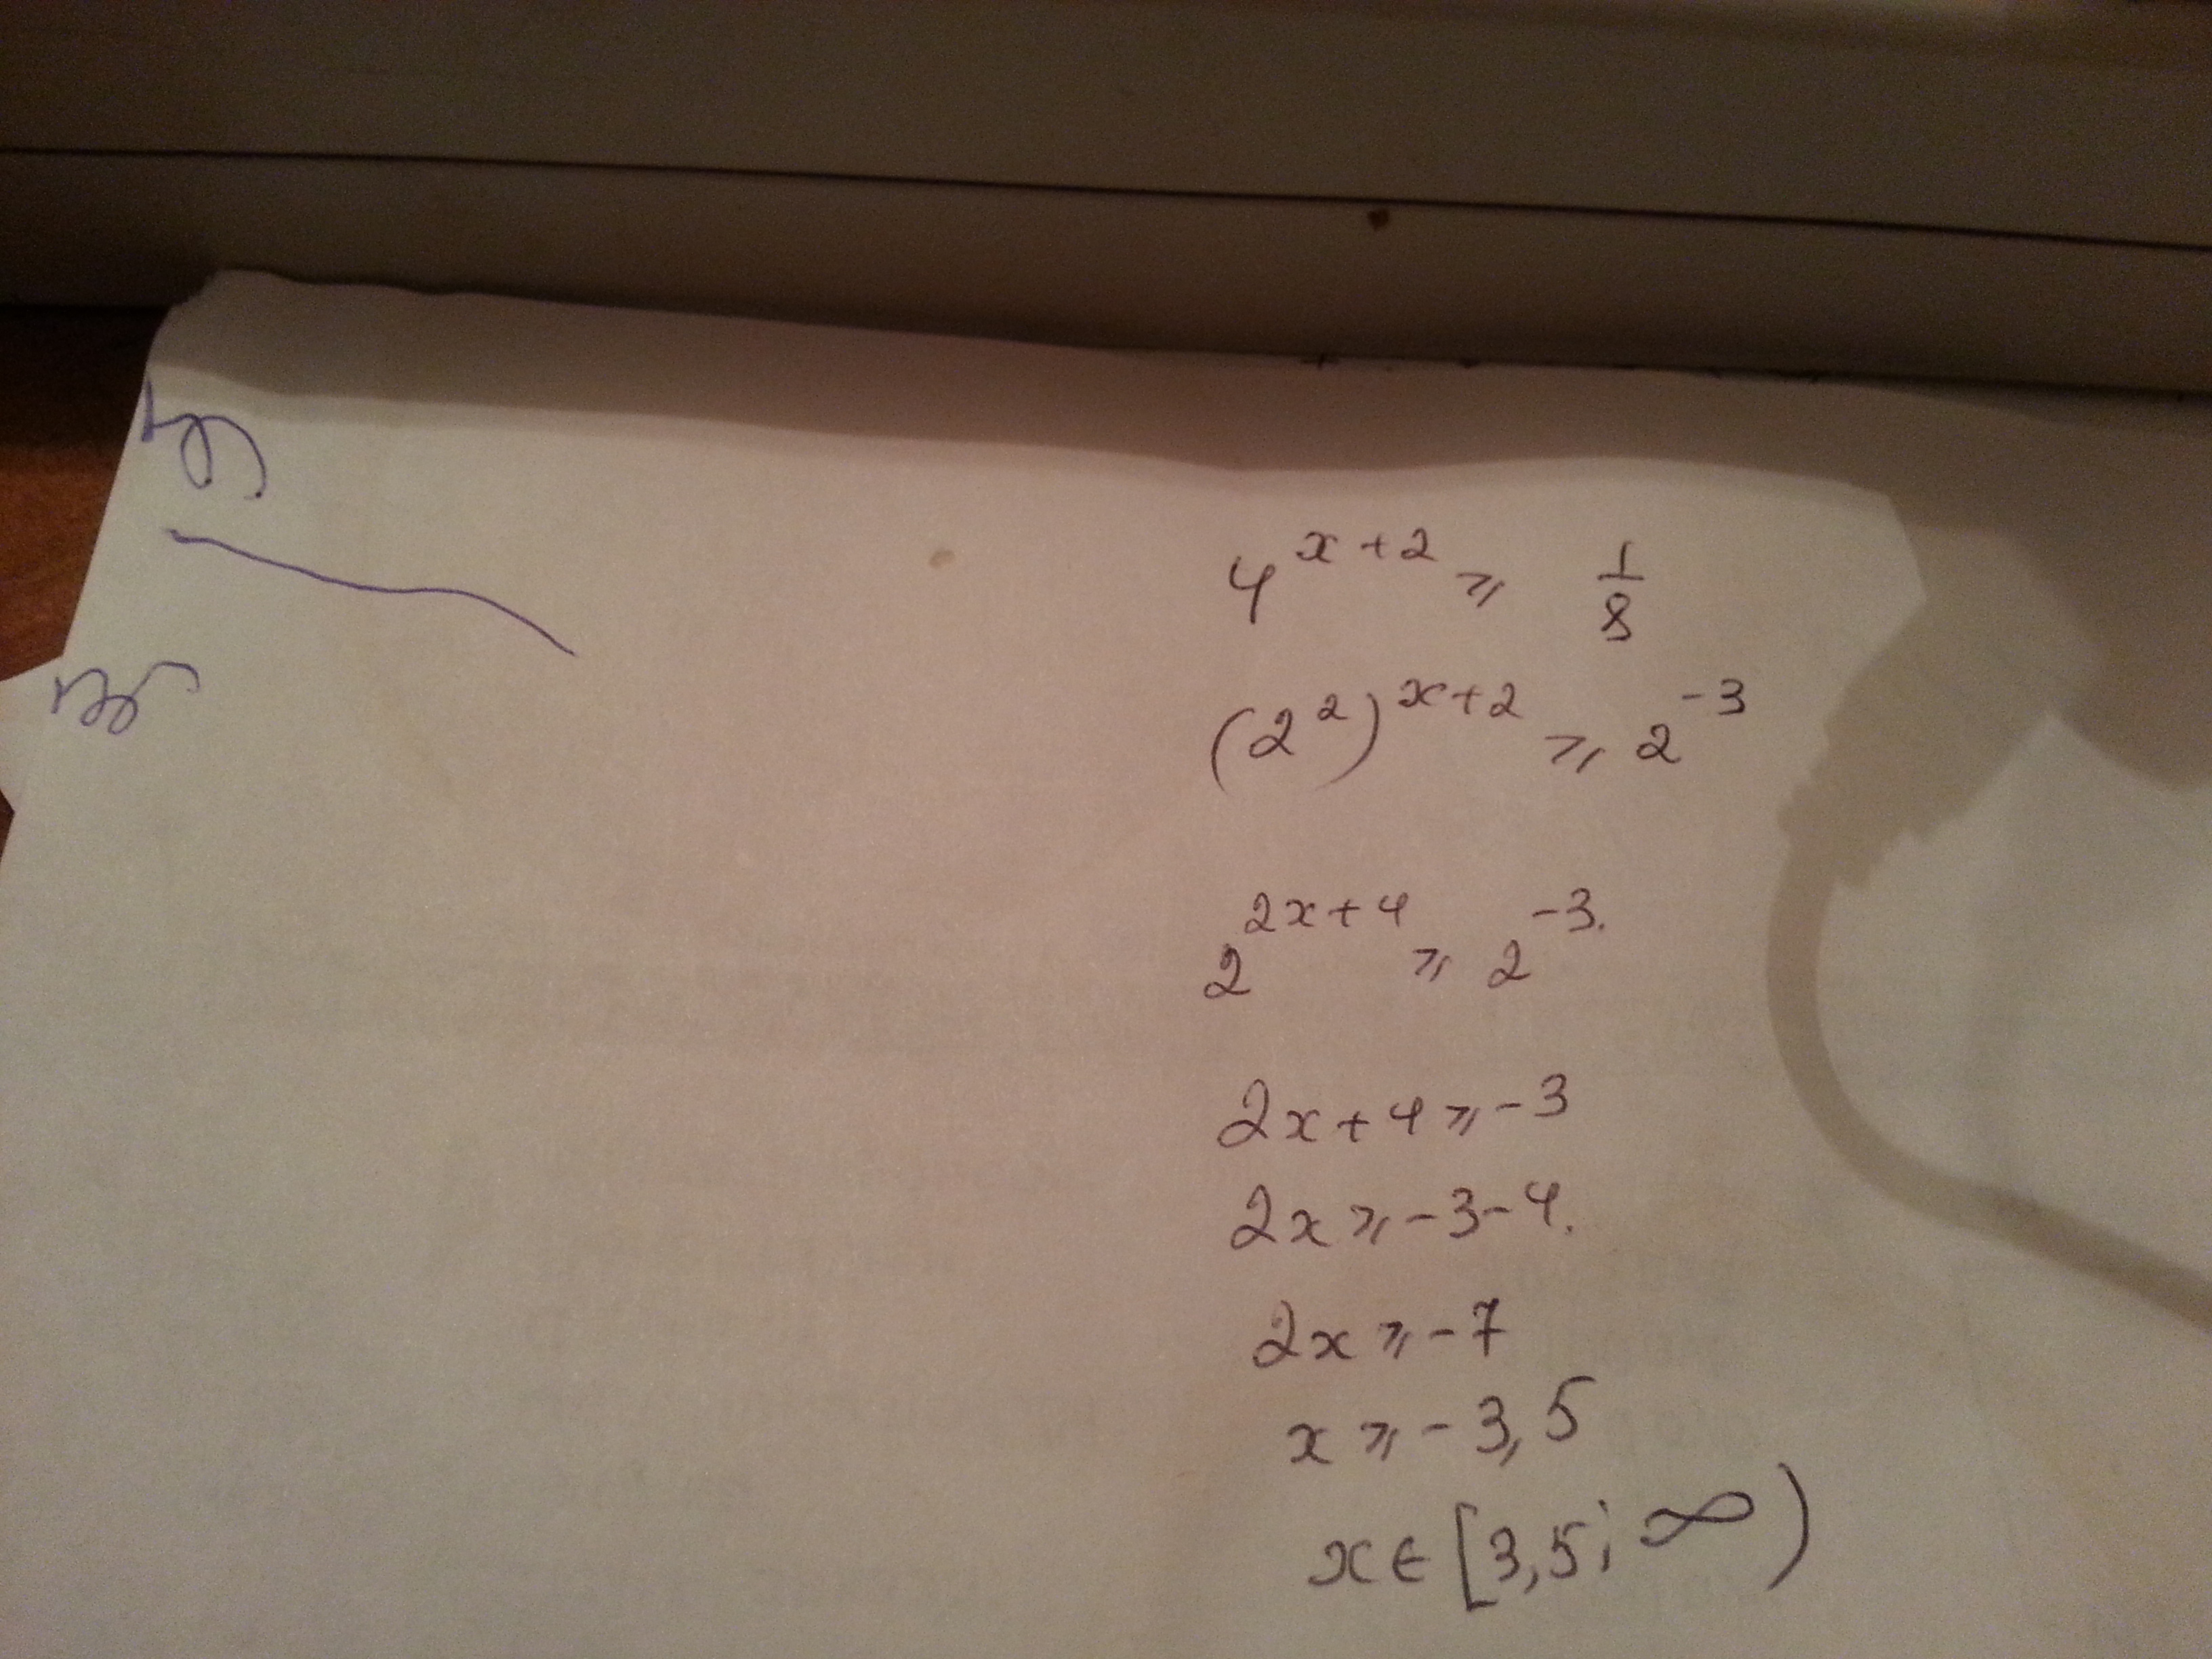 4^{x+2} ⩾ 1/8
(2^2)^{x+2} ⩾ 2^{-3}
2^{2x+4} ⩾ 2^{-3.}
2x+4⩾-3
2x⩾-3-4.
2x⩾-7
x⩾-3,5
x∈[3,5; ∞)